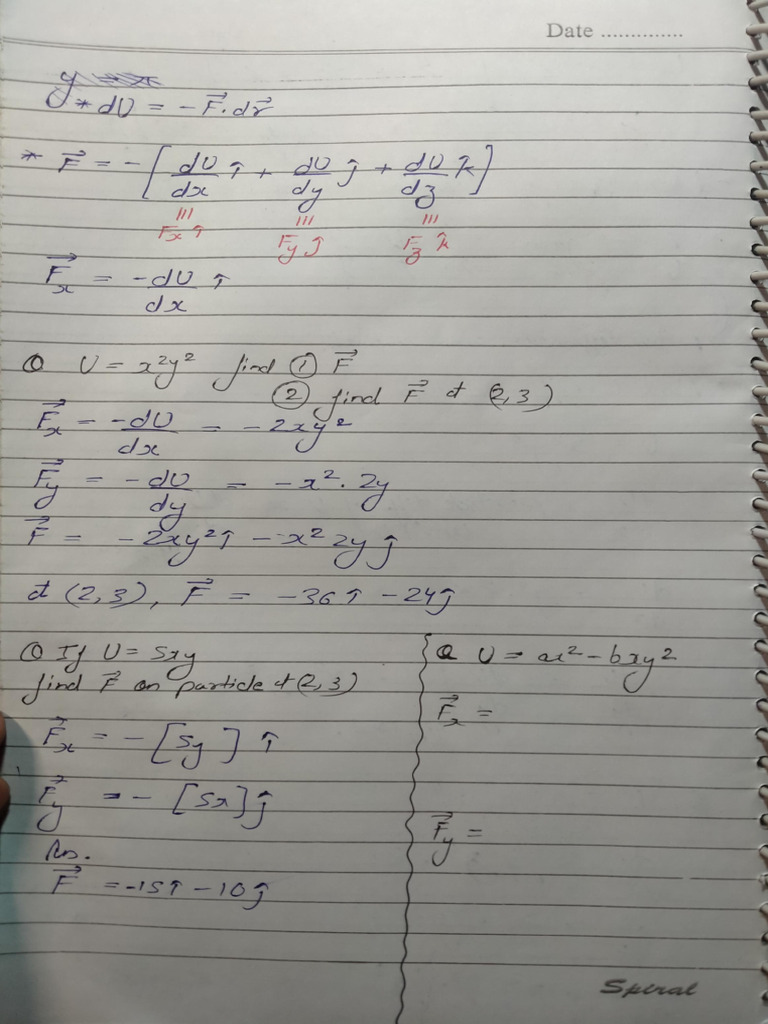 Date ..............
* dU = -F⃗.dr⃗
* F⃗ = -[dU/dx î + dU/dy ĵ + dU/dz k̂]
||| ||| |||
Fx î Fy ĵ Fz k̂
F⃗x = -dU/dx î
Q U = x²y² find ① F⃗
② find F⃗ at (2,3)
F⃗x = -dU/dx = -2xy²
F⃗y = -dU/dy = -x². 2y
F⃗ = -2xy² î - x² 2y ĵ
at (2,3), F⃗ = -36 î - 24 ĵ
Q If U = 5xy
find F⃗ on particle at (2,3)
F⃗x = -[5y] î
F⃗y = -[5x] ĵ
Ans.
F⃗ = -15 î - 10 ĵ
Q U = ax² - bxy²
F⃗x =
F⃗y =
Spiral